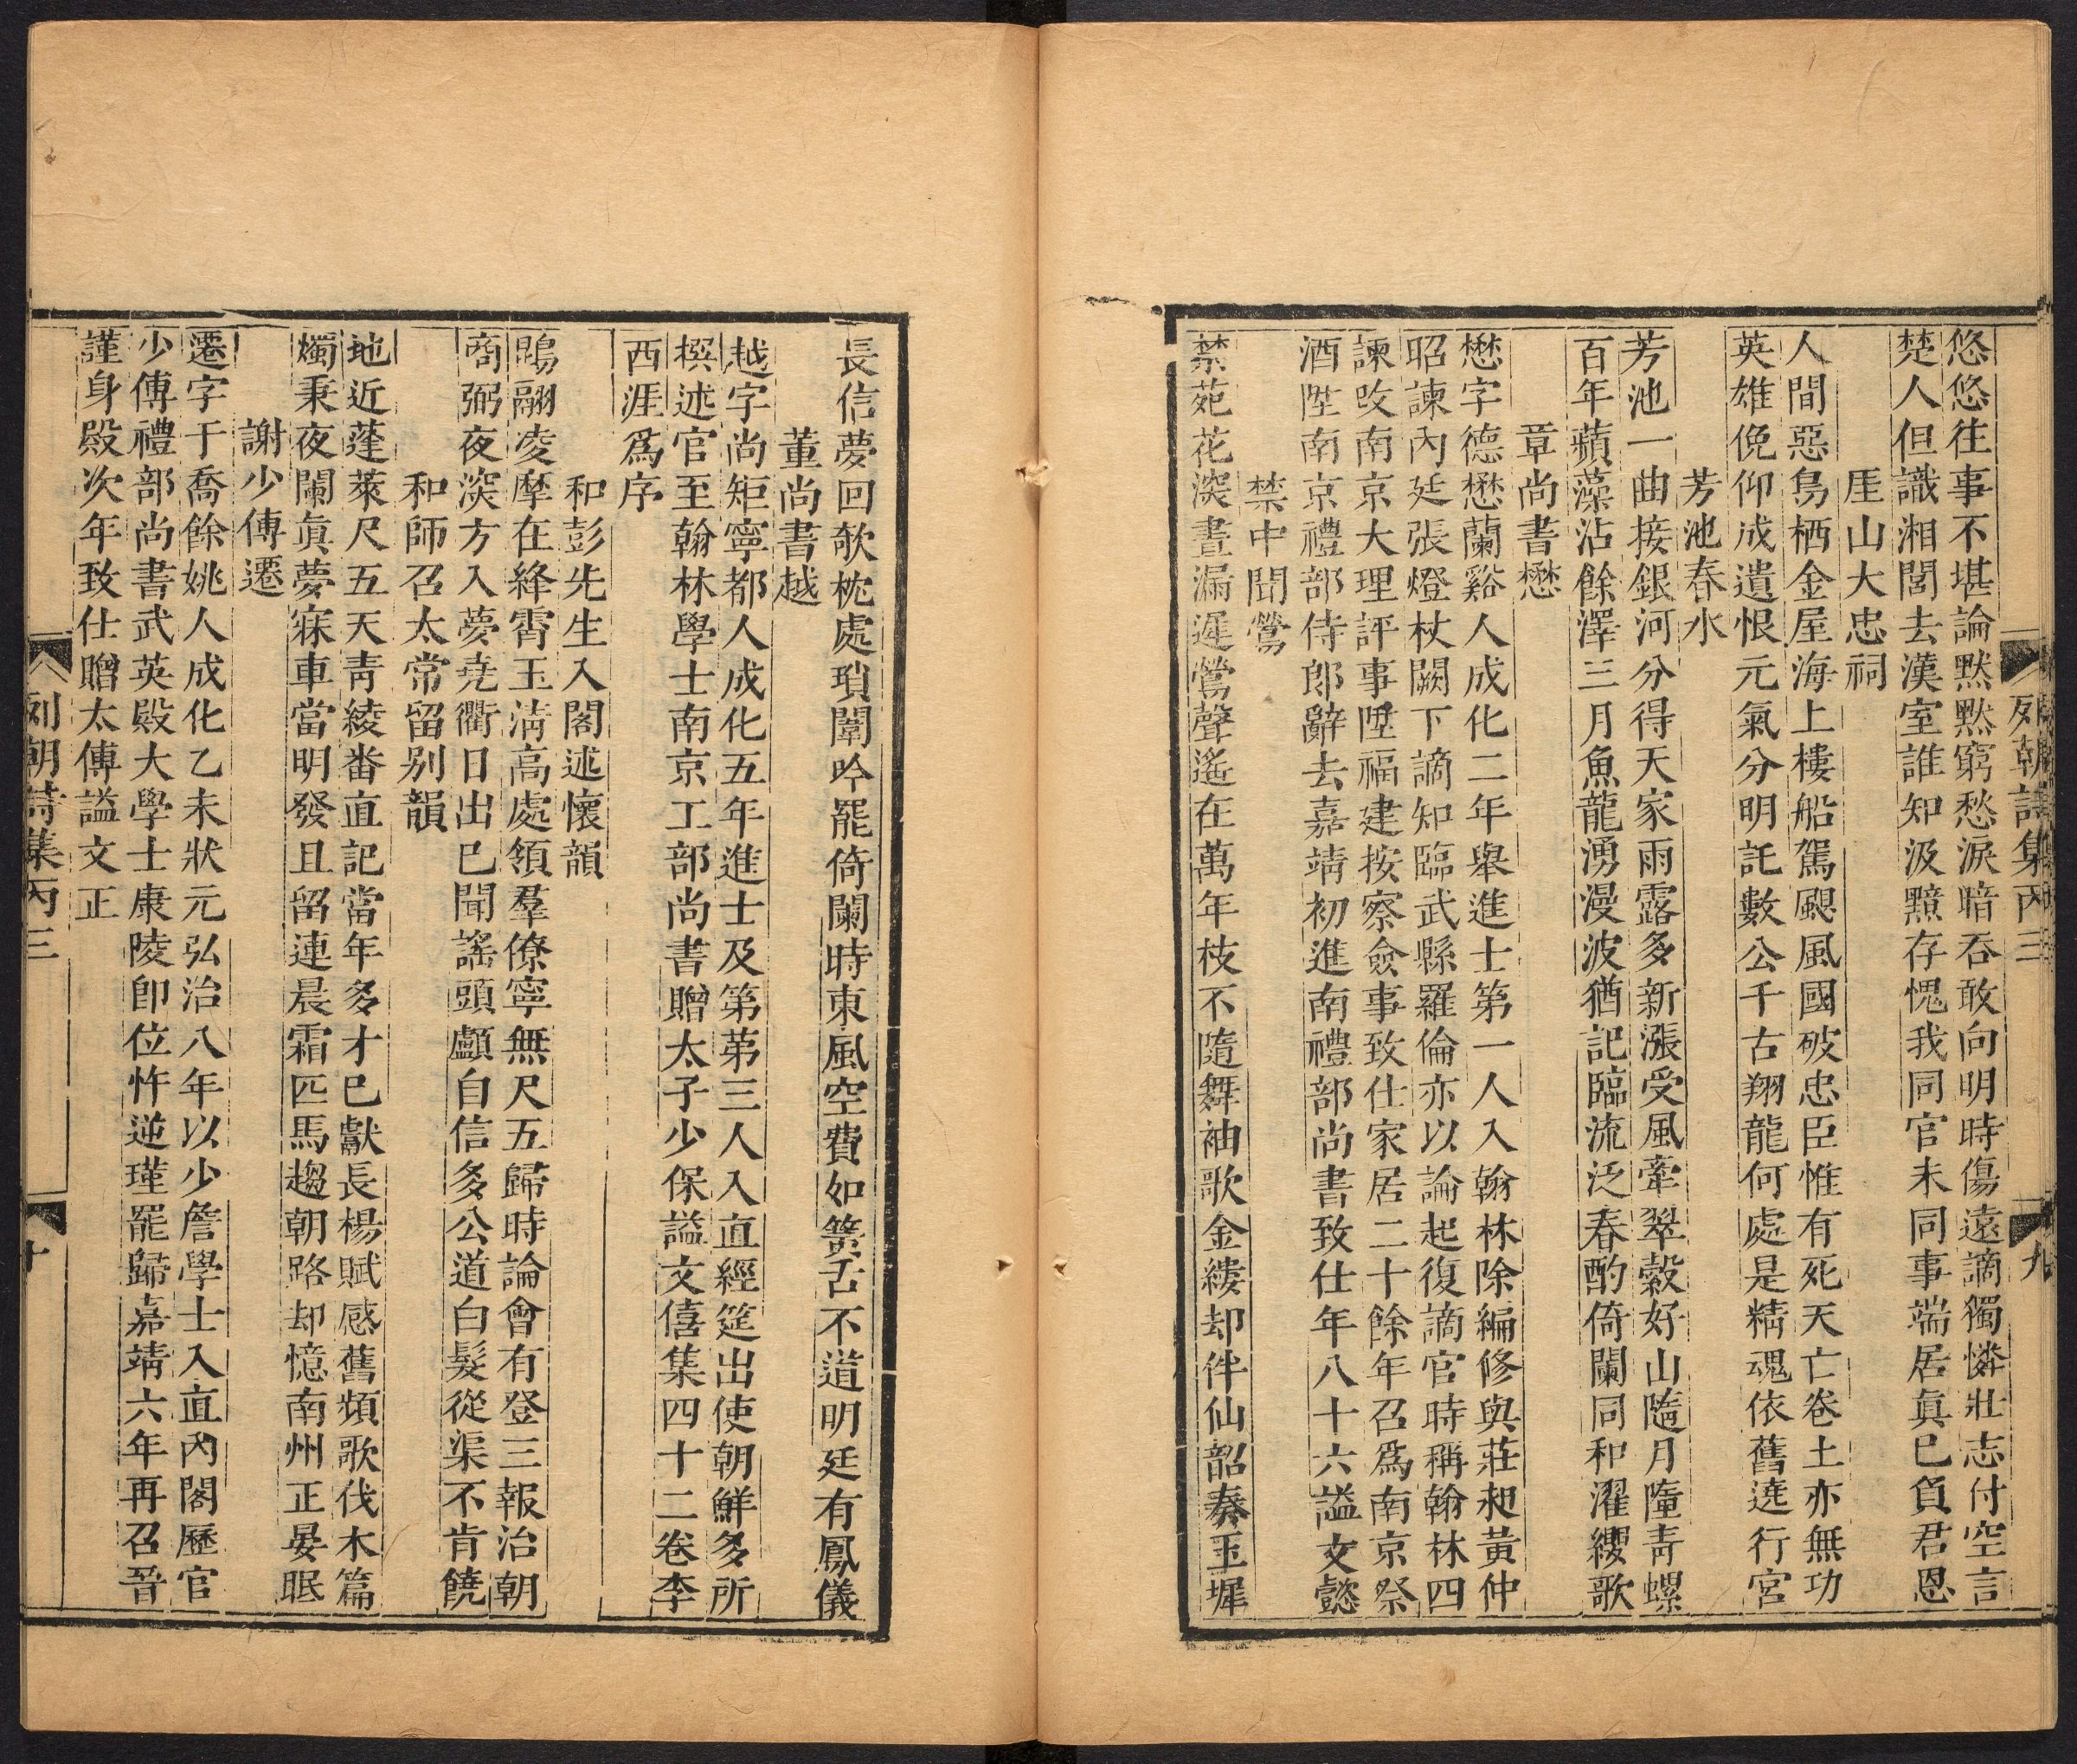 列朝詩集丙三
九
悠悠往事不堪論黙黙窮愁淚暗吞敢向明時傷遠謫獨憐壯志付空言
楚人但識湘閭去漢室誰知汲黯存愧我同官未同事端居眞已負君恩
厓山大忠祠
人間惡鳥栖金屋海上樓船駕颶風國破忠臣惟有死天亡卷土亦無功
英雄俛仰成遺恨元氣分明託數公千古翔龍何處是精魂依舊遶行宮
芳池春水
芳池一曲接銀河分得天家雨露多新漲受風牽翠縠好山隨月墮靑螺
百年蘋藻沾餘澤三月魚龍湧漫波猶記臨流泛春酌倚闌同和濯纓歌
章尚書懋
懋字德懋蘭谿人成化二年舉進士第一人入翰林除編修與莊昶黃仲
昭諫內廷張燈杖闕下謫知臨武縣羅倫亦以論起復謫官時稱翰林四
諫改南京大理評事陞福建按察僉事致仕家居二十餘年召爲南京祭
酒陞南京禮部侍郎辭去嘉靖初進南禮部尚書致仕年八十六謚文懿
禁中聞鶯
禁苑花湥晝漏遲鶯聲遙在萬年枝不隨舞袖歌金縷却伴仙韶奏玉墀
長信夢回欹枕處瑣闈吟罷倚闌時東風空費如簧舌不道明廷有鳳儀
董尚書越
越字尚矩寧都人成化五年進士及第第三人入直經筵出使朝鮮多所
撰述官至翰林學士南京工部尚書贈太子少保謚文僖集四十二卷李
西涯爲序
和彭先生入閣述懷韻
鵾翮凌摩在絳霄玉淸高處領羣僚寧無尺五歸時論會有登三報治朝
商弼夜湥方入夢堯衢日出已聞謠頭顱自信多公道白髮從渠不肯饒
和師召太常留别韻
地近蓬萊尺五天靑綾番直記當年多才已獻長楊賦感舊頻歌伐木篇
燭秉夜闌眞夢寐車當明發且留連晨霜匹馬趨朝路却憶南州正晏眠
謝少傅遷
遷字于喬餘姚人成化乙未狀元弘治八年以少詹學士入直內閣歷官
少傅禮部尚書武英殿大學士康陵卽位忤逆瑾罷歸嘉靖六年再召晉
謹身殿次年致仕贈太傅謚文正
列朝詩集丙三
十